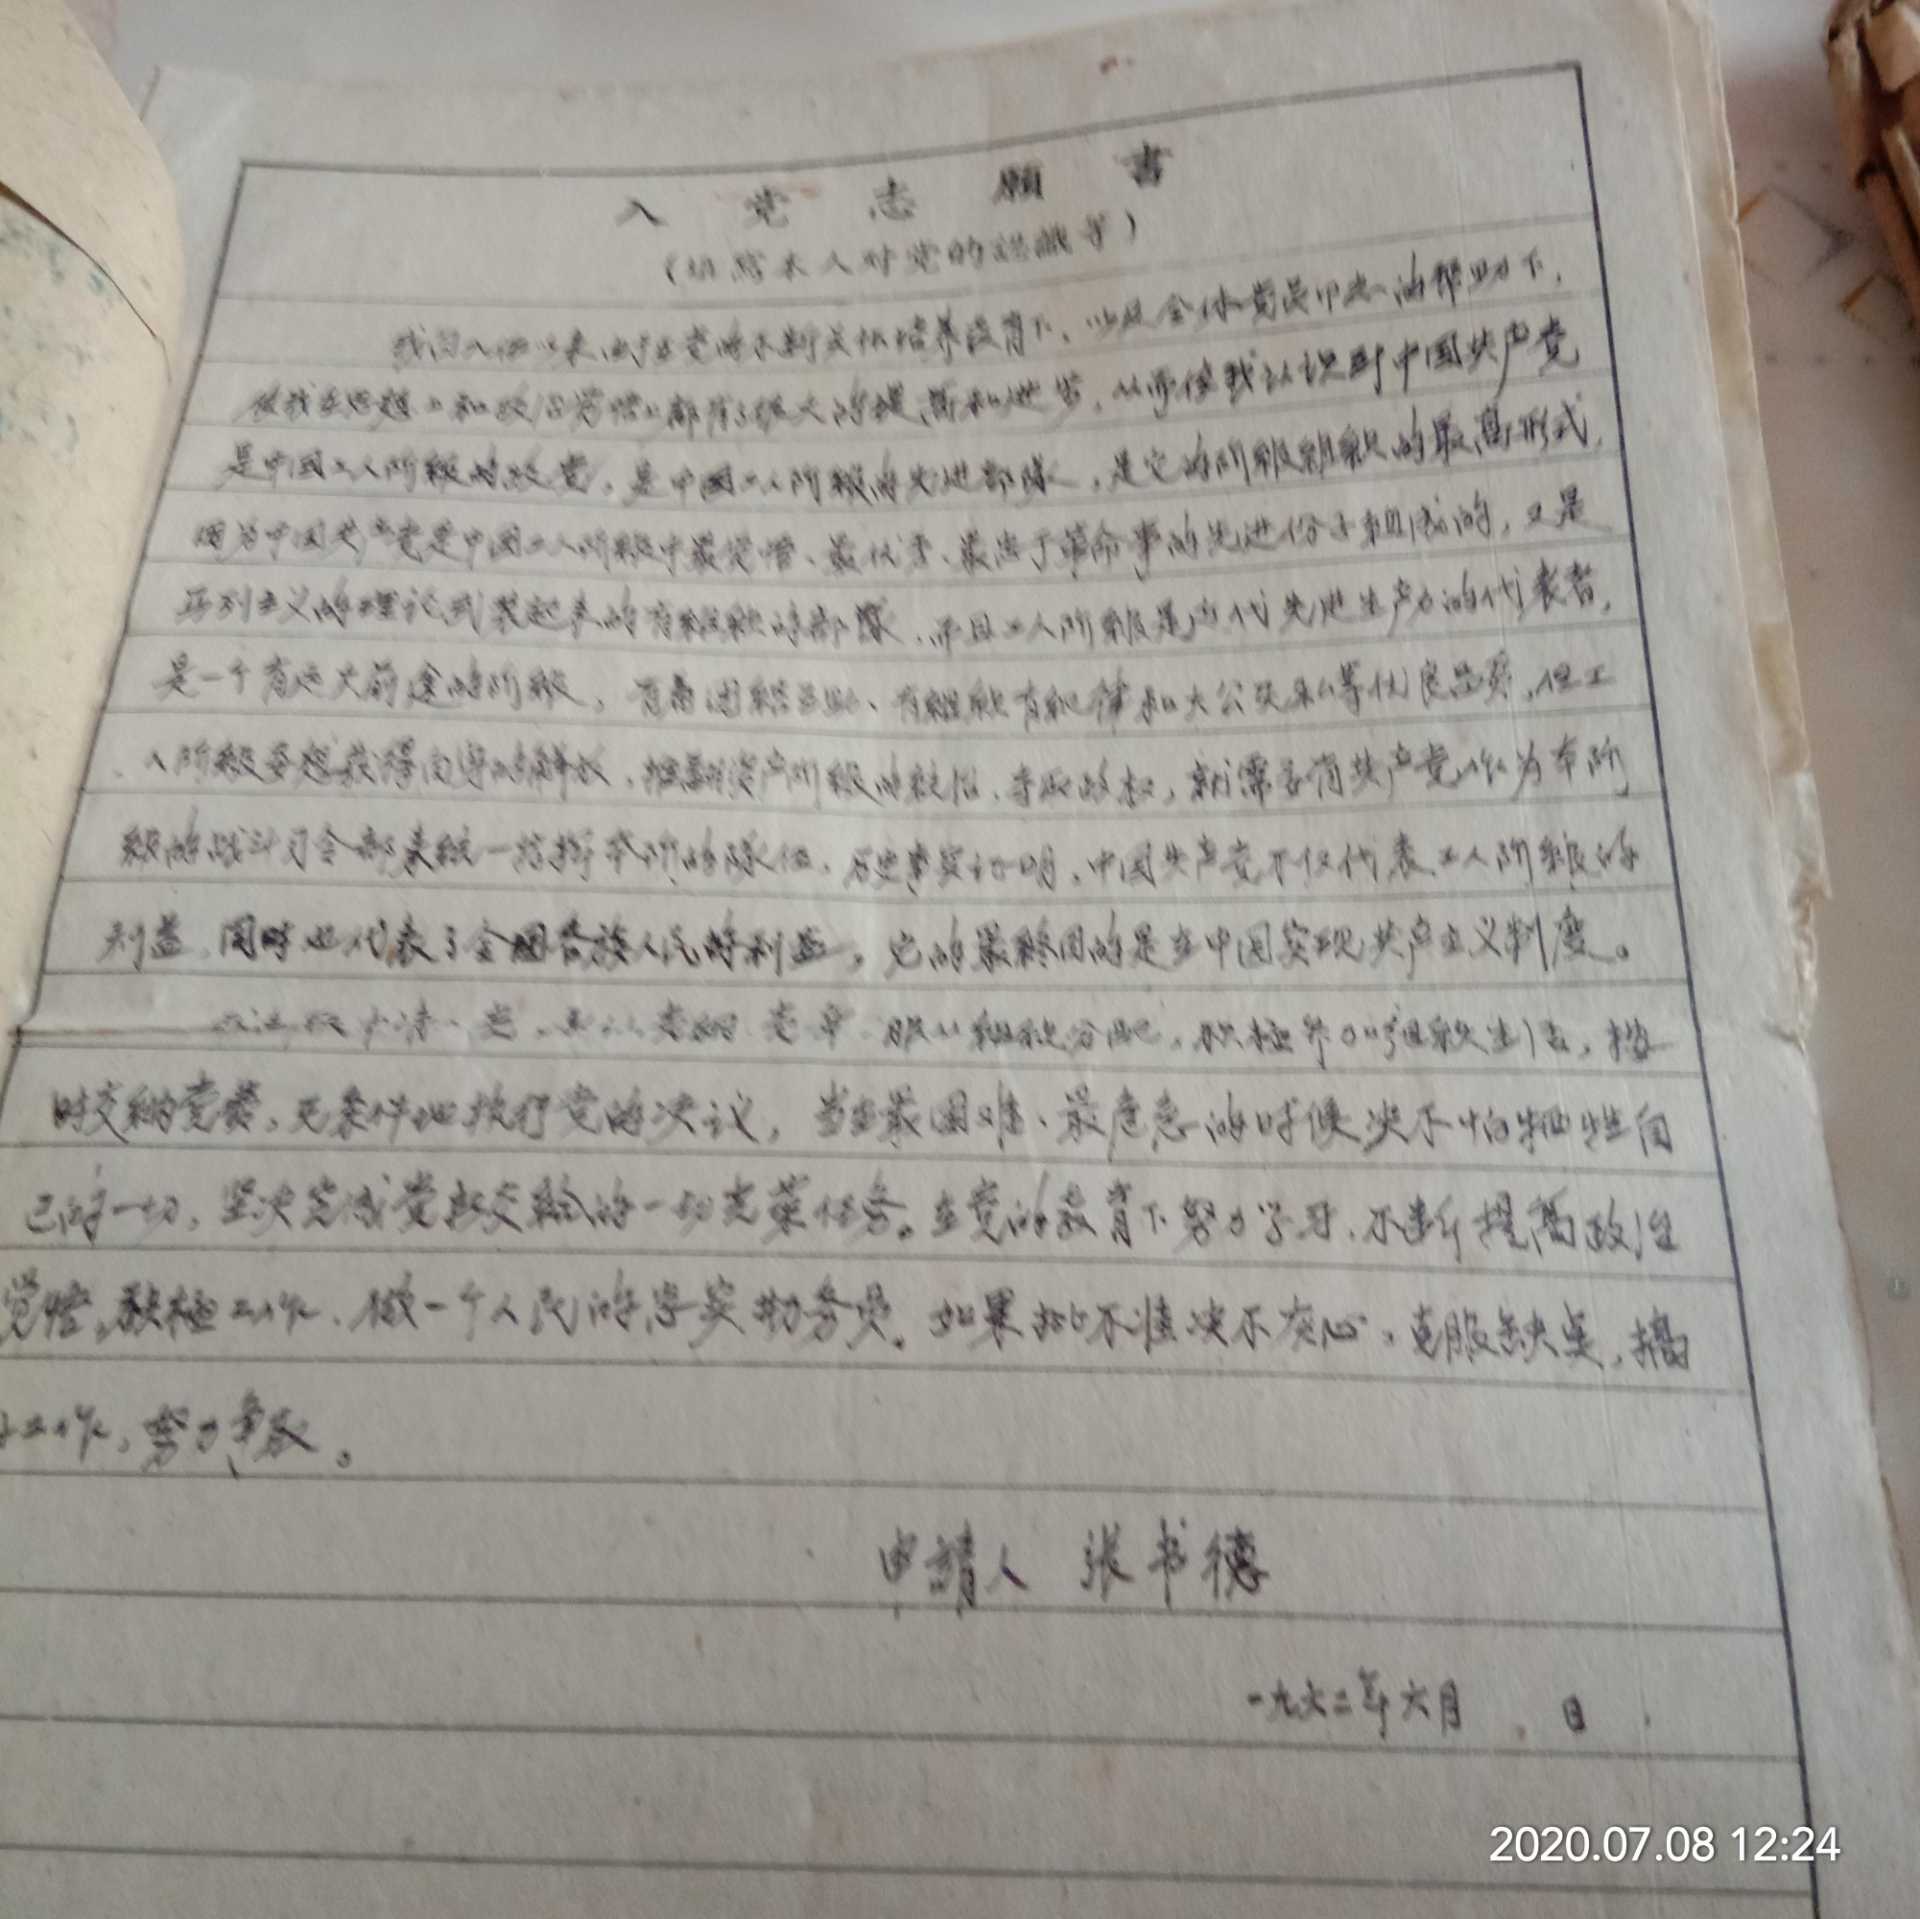 入党志願書
（填寫本人对党的認識等）
我自入伍以来由于党的不断关怀培养教育下，以及全体党员同志的帮助下，
使我在思想上和政治觉悟上都有了很大的提高和进步，从而使我认识到中国共产党
是中国工人阶級的政党，是中国工人阶級的先进部隊，是它的阶級組織的最高形式，
因为中国共产党是中国工人阶級中最觉悟、最优秀、最忠于革命事的先进份子組成的，又是
馬列主义的理论武装起来的有組織的部隊，而且工人阶級是当代先进生产力的代表者，
是一个有远大前途的阶級，有着团結互助、有組織有紀律和大公无私等优良品质，但工
人阶級要想获得自身的解放，推翻資产阶級的統治，夺取政权，就需要有共产党作为本阶
級的战斗司令部来統一指揮本阶的隊伍，历史事实证明，中国共产党不仅代表工人阶級的
利益，同时也代表了全国各族人民的利益，它的最終目的是在中国实现共产主义制度。
申请入党，承认党綱党章服从組織分配，积极参加組織生活，按
时交納党費，无条件地执行党的决议，当在最困难、最危急的时候决不怕牺牲自
己的一切，坚决完成党所交給的一切光荣任务。在党的教育下努力学习，不断提高政治
觉悟，积极工作，做一个人民的忠实勤务员。如果批不准决不灰心，克服缺点，搞
好工作，努力争取。
申請人 张书德
一九六二年六月 日
2020.07.08 12:24